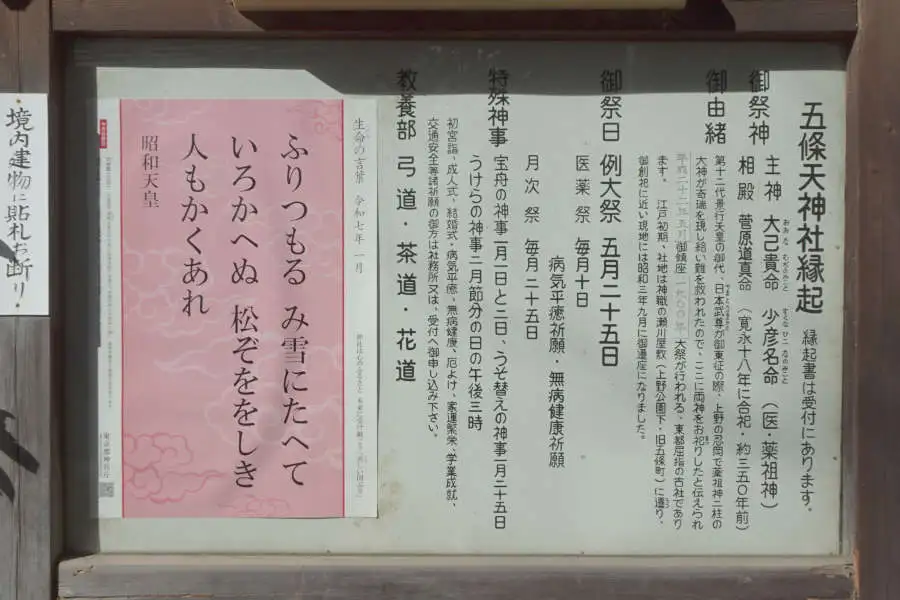 五條天神社縁起 縁起書は受付にあります。
御祭神 主神 大己貴命 少彦名命 (医・薬祖神)
相殿 菅原道真命 (寛永十八年に合祀・約三五〇年前)
御由緒 第十二代景行天皇の御代、日本武尊が御東征の際、上野の忍岡で薬祖神二柱の
大神が奇瑞を現し給い難を救われたので、ここに両神をお祀りしたと伝えられ
ます。 御鎮座一九〇〇年 大祭が行われる、東都屈指の古社であり
江戸初期、社地は神職の瀬川屋敷(上野公園下・旧五條町)に遷り、
御創祀に近い現地には昭和三年九月に御遷座になりました。
御祭日 例大祭 五月二十五日
医薬祭 毎月十日
病気平癒祈願・無病健康祈願
月次祭 毎月二十五日
特殊神事 宝舟の神事一月一日と二日、うそ替えの神事一月二十五日
うけらの神事二月節分の日の午後三時
初宮詣、成人式、結婚式・病気平癒、無病健康、厄よけ、家運繁栄、学業成就、
交通安全等諸祈願の御方は社務所又は、受付へ御申し込み下さい。
教養部 弓道・茶道・花道
生命の言葉 令和七年 一月
ふりつもる み雪にたへて
いろかへぬ 松ぞををしき
人もかくあれ
昭和天皇
東京都神社庁
境内建物に貼札お断り・